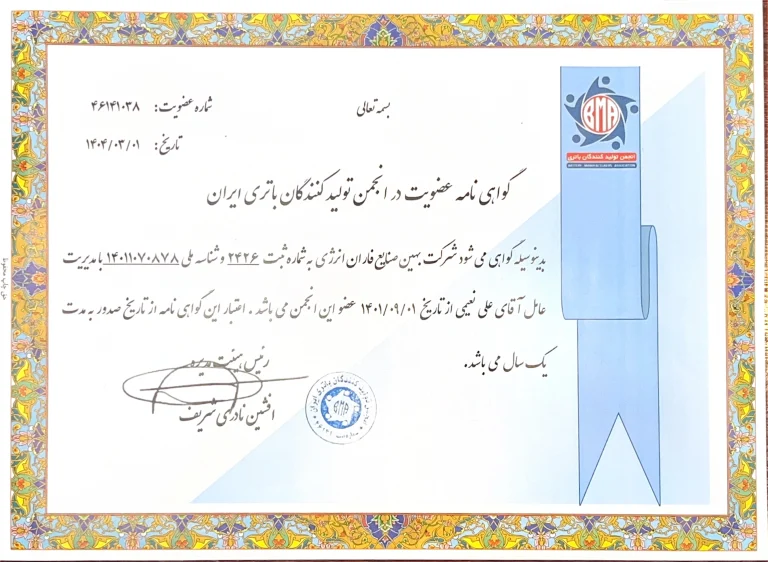 بسمه تعالی
شماره عضویت: ۴۶۱۴۱۰۳۸
تاریخ: ۱۴۰۴/۰۳/۰۱
BMA
انجمن تولید کنندگان باتری
BATTERY MANUFACTURERS ASSOCIATION
گواهی نامه عضویت در انجمن تولید کنندگان باتری ایران
بدینوسیله گواهی می شود شرکت بهین صنایع فاران انرژی به شماره ثبت ۲۴۲۶ و شناسه ملی ۱۴۰۱۱۰۷۰۸۷۸ با مدیریت
عامل آقای علی نعیمی از تاریخ ۱۴۰۱/۰۹/۰۱ عضو این انجمن می باشد . اعتبار این گواهی نامه از تاریخ صدور به مدت
یک سال می باشد.
رئیس هیئت مدیره
افشین نادری شریف
BMA